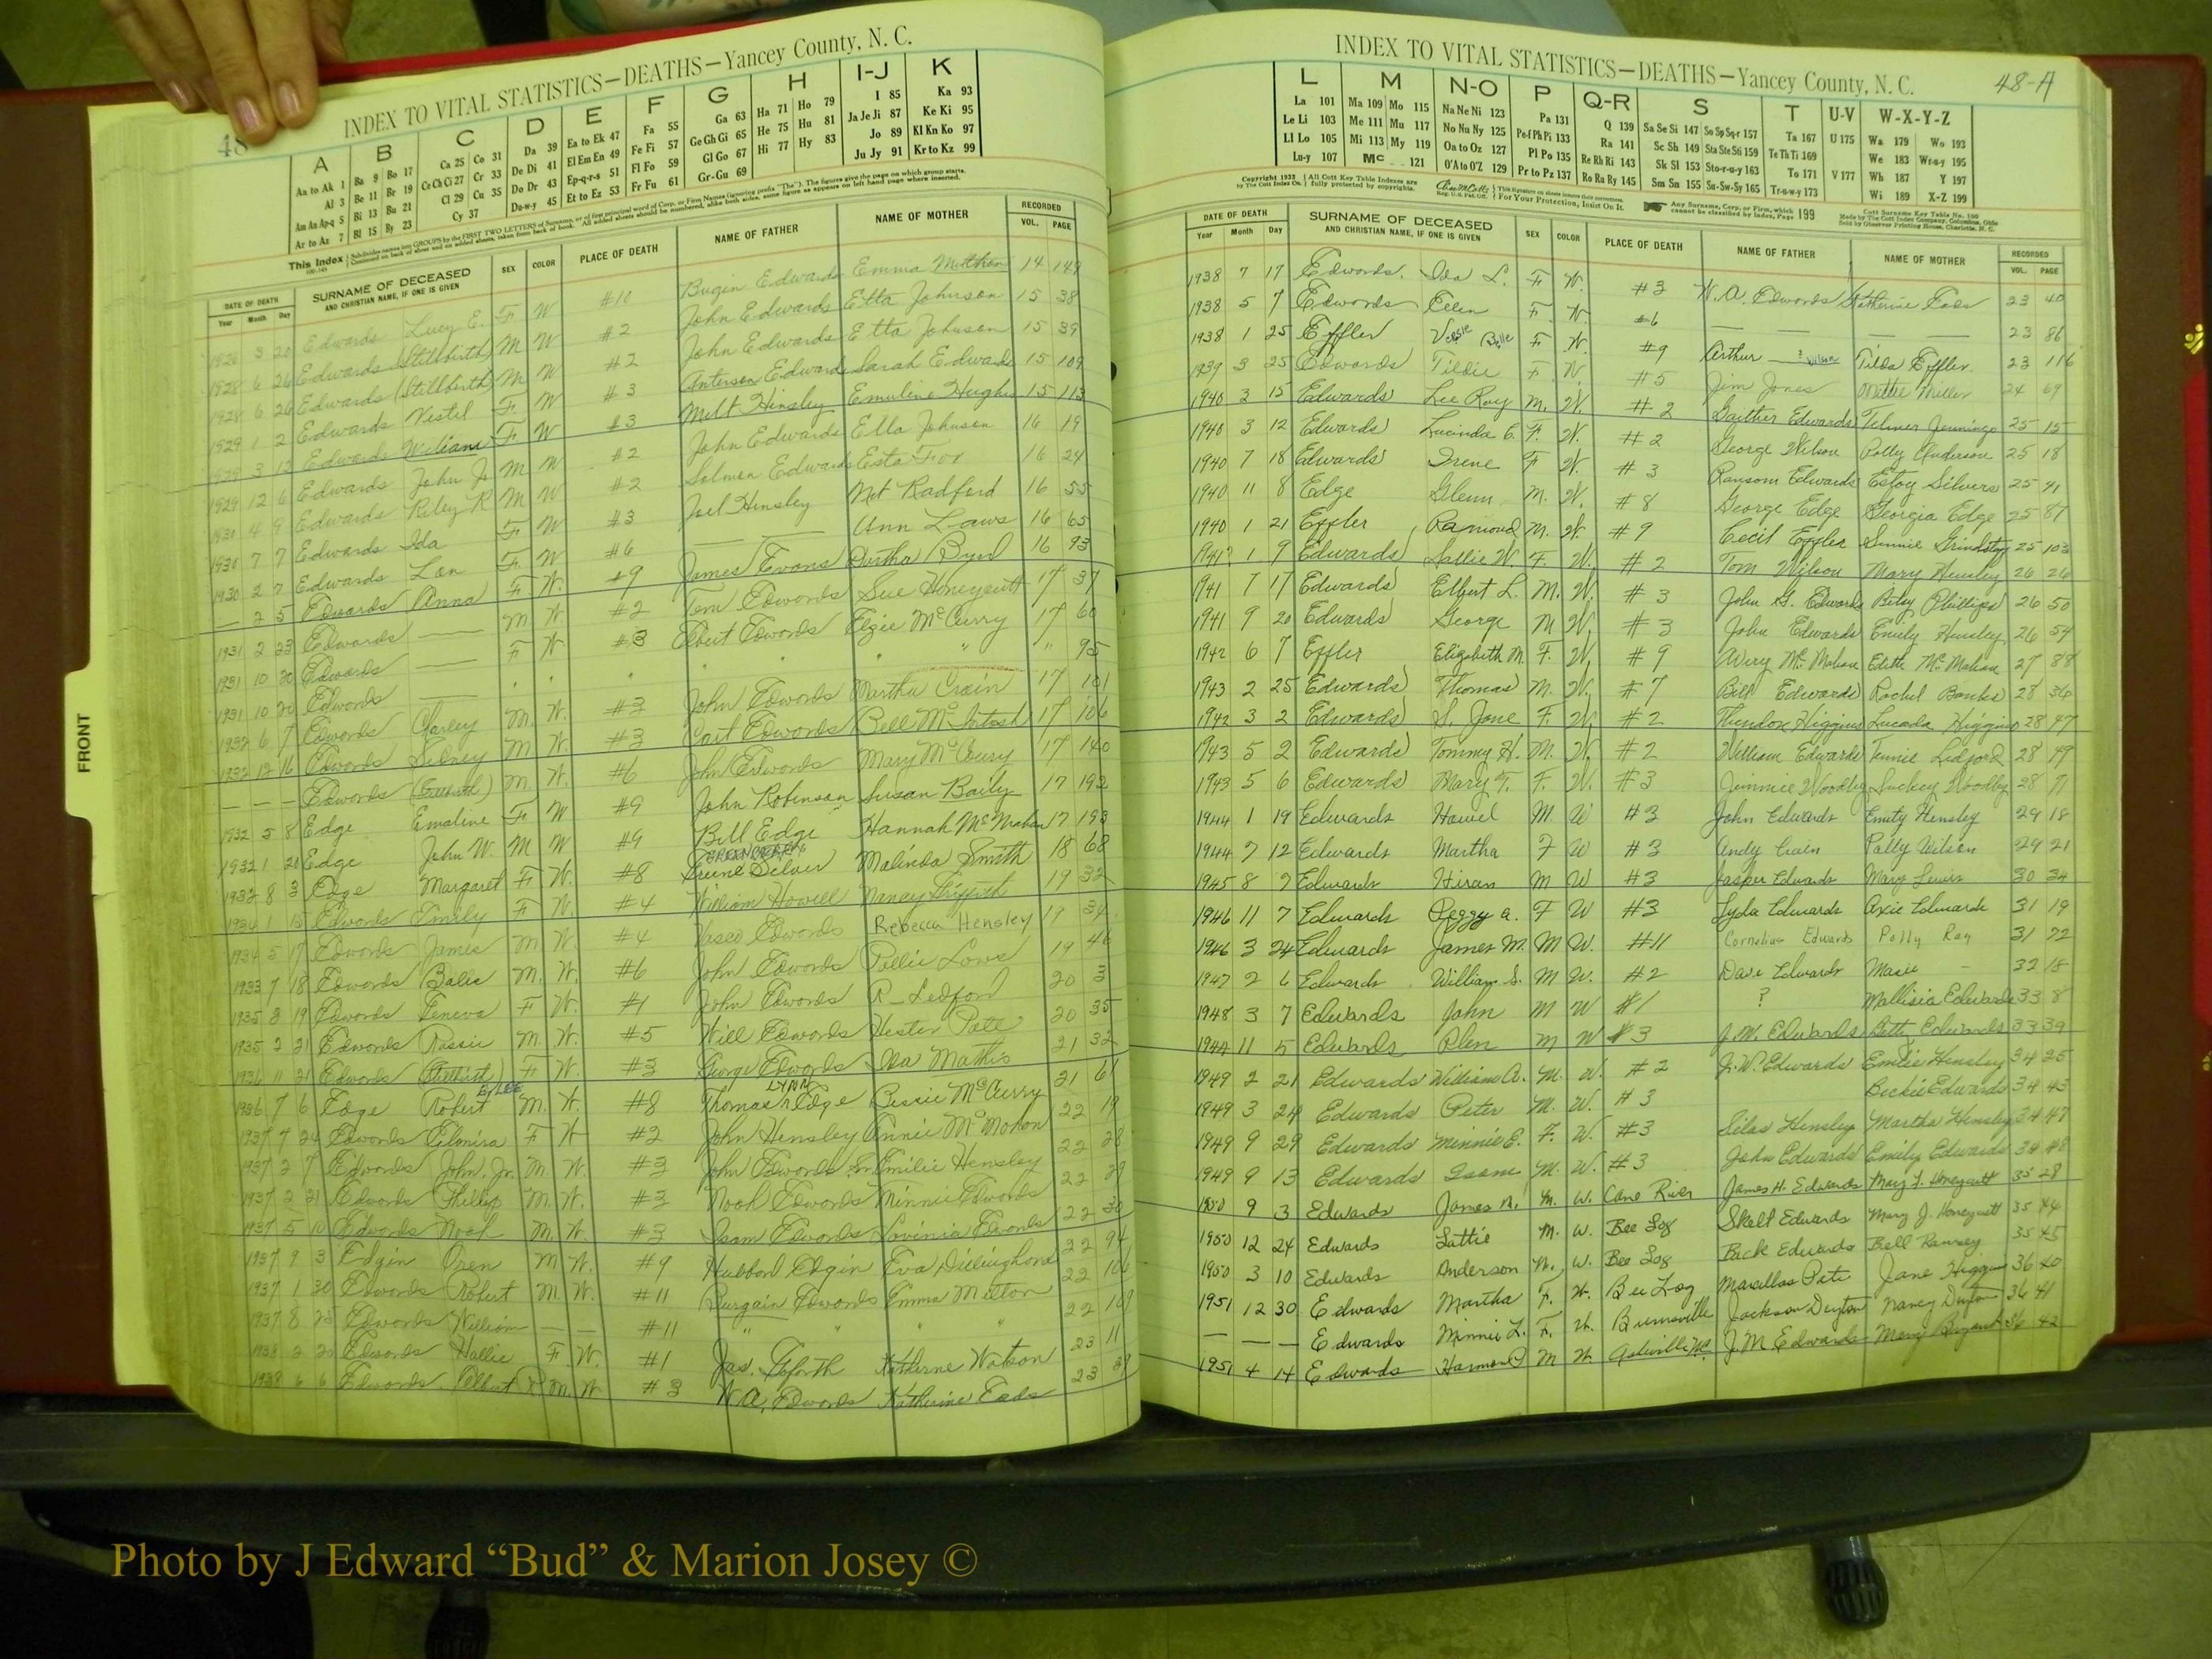 48
INDEX TO VITAL STATISTICS—DEATHS—Yancey County, N. C.
A B C D E F G H I-J K
Aa to Ak 1 Ba 9 Bo 17 Ca 25 Co 31 Da 39 Ea to Ek 47 Fa 55 Ga 63 Ha 71 Ho 79 I 85 Ka 93
Al 3 Be 11 Br 19 Ce Ch Ci 27 Cr 33 De Di 41 El Em En 49 Fe Fi 57 Ge Gh Gi 65 He 75 Hu 81 Ja Je Ji 87 Ke Ki 95
Am An Ap-q 5 Bi 13 Bu 21 Cl 29 Cu 35 Do Dr 43 Ep-q-r-s 51 Fl Fo 59 Gl Go 67 Hi 77 Hy 83 Jo 89 Kl Kn Ko 97
Ar to Az 7 Bl 15 By 23 Cy 37 Du-w-y 45 Et to Ez 53 Fr Fu 61 Gr-Gu 69 Ju Jy 91 Kr to Kz 99
This Index
DATE OF DEATH SURNAME OF DECEASED SEX COLOR PLACE OF DEATH NAME OF FATHER NAME OF MOTHER RECORDED
Year Month Day AND CHRISTIAN NAME, IF ONE IS GIVEN VOL. PAGE
3 20 Edwards Lucy E. F W #10 Bugin Edwards Emma 14 149
1928 6 26 Edwards (Stillbirth) M W #2 John Edwards Etta Johnson 15 38
1928 6 26 Edwards (Stillbirth) M W #2 John Edwards Etta Johnson 15 39
1929 1 2 Edwards Vestil F. W #3 Edwards Sarah Edwards 15 109
1929 3 12 Edwards F W #3 Milt Hensley Emuline Hughs 15 113
1929 12 6 Edwards John J. M W #2 John Edwards Ella Johnson 16 19
4 9 Edwards Riley R M W #2 Solmon Edwards Esta Fox 16 24
1930 7 7 Edwards Ida F W #3 Joel Hensley Met Radford 16 55
1930 2 7 Edwards Lon F. W #6 — — Ann Laws 16 65
— 2 5 Edwards Anna F W. #9 James Evans Byrd 16 93
1931 2 23 Edwards — M W. #2 Tom Edwards Sue Honeycutt 17 37
1931 10 20 Edwards — F W #3 Edwards Elzie McCurry 17 60
1931 10 20 Edwards — " " " " " 95
1932 6 7 Edwards Charley M. W. #3 John Edwards Martha Crain 17 101
1932 12 16 Edwards Sidney M W. #3 Edwards Bell McIntosh 17 106
— — — Edwards M. W. #6 John Edwards Mary McCurry 17 140
1932 5 8 Edge Emaline F W #9 John Robinson Susan Baily 17 192
1932 1 20 Edge John W. M W #9 Bill Edge Hannah McMahan 17 193
1932 8 3 Edge Margaret F W. #8 Greene Silver Malinda Smith 18 68
1934 1 15 Edwards Emily F W. #4 William Howell Nancy Griffith 19 32
1934 5 17 Edwards James M W. #4 Edwards Rebecca Hensley 19 34
1933 7 18 Edwards M. W. #6 John Edwards Pollie Laws 19 46
1935 3 19 Edwards Geneva F W. #1 John Edwards R— Ledford 20 3
1935 2 21 Edwards M. W. #5 Will Edwards Hester Pate 20 35
1936 11 21 Edwards F W. #3 George Edwards Ida Mathis 21 32
1936 7 6 Edge Robert ByLEE M. W. #8 Thomas LYNN Edge Bessie McCurry 21 61
1937 7 24 Edwards Elmira F W #2 John Hensley Annie McMahon 22 19
1937 2 7 Edwards John, Jr. M. W. #3 John Edwards Sr. Emilie Hensley 22 28
1937 2 21 Edwards Phillip M. W. #3 Noah Edwards Minnie Edwards 22 29
1937 5 10 Edwards Noah M. W. #3 Isam Edwards Lovinia Edwards 22 30
1937 9 3 Edgin Oren M W. #9 Hubbard Edgin Eva Dillingham 22 94
1937 1 30 Edwards Robert M. W. #11 Burgain Edwards Emma Melton 22 106
1937 8 25 Edwards William — — #11 " " " " 22 109
1938 2 20 Edwards Hallie F. W. #1 Jas. Katherine Watson 23 11
1938 6 6 Edwards Albert R. M. W. #3 W.A. Edwards Katherine Eads 23 39
FRONT
INDEX TO VITAL STATISTICS—DEATHS—Yancey County, N. C.
48-A
L M N-O P Q-R S T U-V W-X-Y-Z
La 101 Ma 109 Mo 115 Na Ne Ni 123 Pa 131 Q 139 Sa Se Si 147 So Sp Sq-r 157 Ta 167 U 175 Wa 179 Wo 193
Le Li 103 Me 111 Mu 117 No Nu Ny 125 Pe-f Ph Pi 133 Ra 141 Sc Sh 149 Sta Ste Sti 159 Te Th Ti 169 We 183 Wr-u-y 195
Ll Lo 105 Mi 113 My 119 Oa to Oz 127 Pl Po 135 Re Rh Ri 143 Sk Sl 153 Sto-r-u-y 163 To 171 V 177 Wh 187 Y 197
Lu-y 107 Mc 121 O'A to O'Z 129 Pr to Pz 137 Ro Ru Ry 145 Sm Sn 155 Su-Sw-Sy 165 Tr-u-w-y 173 Wi 189 X-Z 199
Copyright 1933 by The Cott Index Co. All Cott Key Table Indexes are fully protected by copyrights. For Your Protection, Insist On It. Any Surname, Corp. or Firm, which cannot be classified by Index, Page 199
DATE OF DEATH SURNAME OF DECEASED SEX COLOR PLACE OF DEATH NAME OF FATHER NAME OF MOTHER RECORDED
Year Month Day AND CHRISTIAN NAME, IF ONE IS GIVEN VOL. PAGE
1938 7 17 Edwards, Ida L. F W. #3 W. A. Edwards Katherine Eads 23 40
1938 5 7 Edwards Ellen F. W. #6 — — — 23 86
1938 1 25 Effler Belle F W. #9 Arthur — ? Wilson Tilda Effler 23 116
1939 3 25 Edwards Tildie F. W. #5 Jim Jones Miller 24 69
1940 3 15 Edwards Lee Roy M. W. #2 Gaither Edwards Telmer Jennings 25 15
1940 3 12 Edwards Lucinda E. F. W. #2 George Wilson Polly Anderson 25 18
1940 7 18 Edwards Irene F W. #3 Ransom Edwards Estoy Silvers 25 41
1940 11 8 Edge Glenn M. W. #8 George Edge Georgia Edge 25 87
1940 1 21 Effler Ramond M. W. #9 Cecil Effler Grindstaff 25 103
1941? 1 9 Edwards Sallie W. F. W. #2 Tom Wilson Mary Hensley 26 26
1941 7 17 Edwards Elbert L. M. W. #3 John G. Edwards Betsy Phillips 26 50
1941 9 20 Edwards George M W. #3 John Edwards Emily Hensley 26 54
1942 6 7 Effler Elizabeth M. F. W. #9 Avery McMahan Edith McMahan 27 88
1943 2 25 Edwards Thomas M. W. #7 Bill Edwards Rachel Banks 28 36
1942 3 2 Edwards S. Jane F. W. #2 Theodox Higgins Lucada Higgins 28 47
1943 5 2 Edwards Tommy H. M. W. #2 William Edwards Tennie Ledford 28 49
1943 5 6 Edwards Mary T. F. W. #3 Jimmie Woodby Luckey Woodby 28 71
1944 1 19 Edwards Howel M W #3 John Edwards Emily Hensley 29 18
1944 7 12 Edwards Martha F W #3 Andy Crain Polly Wilson 29 21
1945 8 2 Edwards Hiram M W #3 Jasper Edwards Mary Lewis 30 34
1946 11 7 Edwards Peggy A. F W #3 Lyda Edwards Axie Edwards 31 19
1946 3 24 Edwards James M. M W. #11 Cornelius Edwards Polly Ray 31 72
1947 2 6 Edwards William S. M W. #2 Dave Edwards Masie — 32 18
1948 3 7 Edwards John M W #1 ? Mallisia Edwards 33 8
11 5 Edwards Olen M W #3 J. W. Edwards Bett Edwards 33 39
1949 2 21 Edwards William A. M. W. #2 J. W. Edwards Emlie Hensley 34 25
1949 3 24 Edwards Peter M. W. #3 Beckie Edwards 34 43
1949 9 29 Edwards Minnie E. F. W. #3 Silas Hensley Martha Hensley 34 47
1949 9 13 Edwards M. W. #3 John Edwards Emily Edwards 34 48
1950 9 3 Edwards James M. W. Cane River James H. Edwards Mary J. Honeycutt 35 28
1950 12 24 Edwards Lattie M. W. Bee Log Skelt Edwards Mary J. Honeycutt 35 44
1950 3 10 Edwards Anderson M. W. Bee Log Back Edwards Bell Ramsey 35 45
1951 12 30 Edwards Martha F. W. Bee Log Jane Higgins 36 40
— — — Edwards Minnie L. F. W. Burnsville Jackson Deyton Nancy Deyton 36 41
1951 4 14 Edwards Harmon P M W. J. M Edwards Mary Bryant 36 42
Photo by J Edward “Bud” & Marion Josey ©